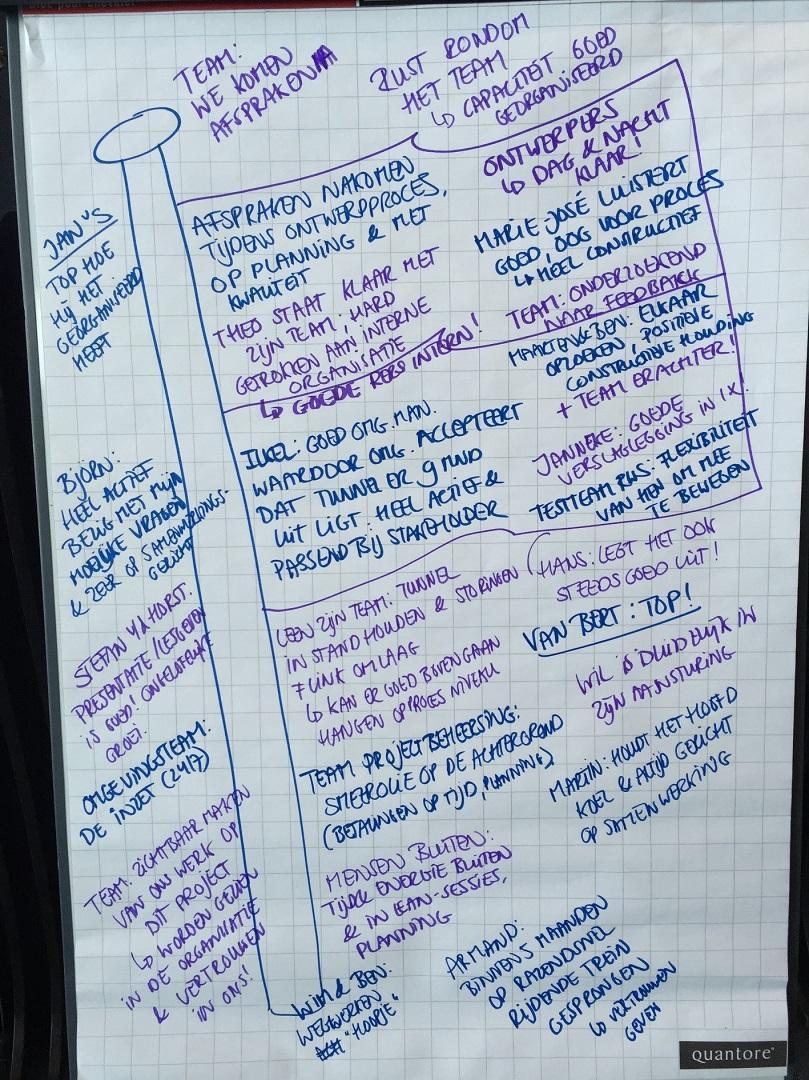 TEAM:
WE KOMEN
AFSPRAKEN NA
RUST RONDOM
HET TEAM
↳ CAPACITEIT GOED
GEORGANISEERD
ONTWERPERS
↳ DAG & NACHT
KLAAR!
JAN'S
TOP HOE
HIJ HET
GEORGANISEERD
HEEFT
AFSPRAKEN NAKOMEN
TIJDENS ONTWERPPROCES,
OP PLANNING & MET
KWALITEIT
MARIE JOSÉ LUISTERT
GOED, OOG VOOR PROCES
↳ HEEL CONSTRUCTIEF
THEO STAAT KLAAR MET
ZIJN TEAM; HARD
GETROKKEN AAN INTERNE
ORGANISATIE
↳ GOEDE REIS INTERN!
TEAM: ONDERZOEKEND
NAAR FEEDBACK
MAARTEN & BEN: ELKAAR
OPZOEKEN, POSITIEVE
CONSTRUCTIEVE HOUDING
+ TEAM ERACHTER!
GOED OMG. MAN.
WAARDOOR OMG. ACCEPTEERT
DAT TUNNEL ER 9 MND
UIT LIGT: HEEL ACTIEF &
PASSEND BIJ STAKEHOLDER
JANNEKE: GOEDE
VERSLAGLEGGING IN 1X!
TESTTEAM RWS: FLEXIBILITEIT
VAN HEN OM MEE
TE BEWEGEN
BJORN:
HEEL ACTIEF
BEZIG MET MIJN
MOEILIJKE VRAGEN
& ZEER OP SAMENWERKINGS-
GERICHT
HANS: LEGT HET OOK
STEEDS GOED UIT!
VAN BERT: TOP!
STEFAN V/D HORST.
PRESENTATIE/LESGEVEN
IS GOED! ONGELOFELIJKE
GROEI.
LEEN ZIJN TEAM: TUNNEL
IN STAND HOUDEN & STORINGEN
FLINK OMLAAG
↳ KAN ER GOED BOVEN GAAN
HANGEN OP PROCES NIVEAU
WIL IS DUIDELIJK IN
ZIJN AANSTURING
OMGEVINGSTEAM:
DE INZET (24/7)
TEAM PROJECTBEHEERSING:
SMEEROLIE OP DE ACHTERGROND
(BETALINGEN OP TIJD, PLANNING)
MARTIN: HOUDT HET HOOFD
KOEL & ALTIJD GERICHT
OP SAMENWERKING
TEAM: ZICHTBAAR MAKEN
VAN ONS WERK OP
DIT PROJECT
↳ WORDEN GEZIEN
IN DE ORGANISATIE
& VERTROUWEN
IN ONS!
MENSEN BLIJVEN:
TIJD & ENERGIE BLIJVEN
& IN LEAN-SESSIES,
PLANNING
WIM & BEN:
WEGWERKEN
"HOOPJE"
ARMAND:
BINNEN 5 MAANDEN
OP RAZENDSNEL
RIJDENDE TREIN
GESPRONGEN
↳ VERTROUWEN
GEVEN
quantore